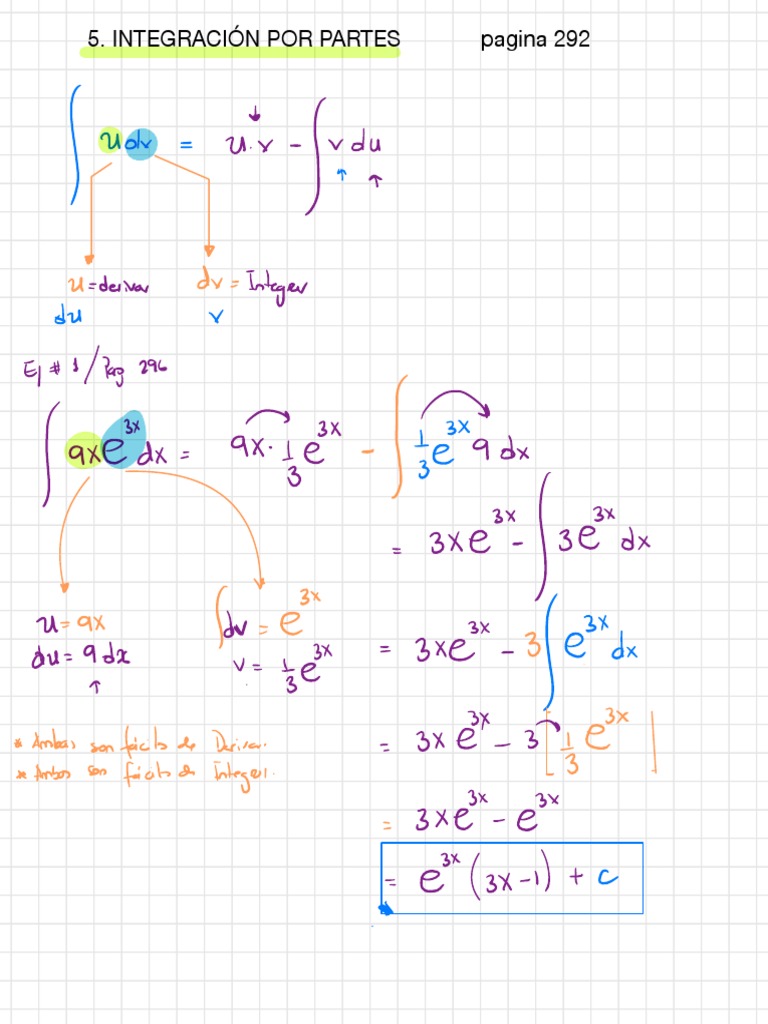 5. INTEGRACIÓN POR PARTES pagina 292
∫ u dv = u·v - ∫ v du
u = derivar dv = Integrar
du v
Ej # 1 / Pag 296
∫ 9x e^{3x} dx = 9x · 1/3 e^{3x} - ∫ 1/3 e^{3x} 9 dx
= 3x e^{3x} - ∫ 3 e^{3x} dx
u = 9x ∫ dv = e^{3x}
du = 9 dx v = 1/3 e^{3x}
= 3x e^{3x} - 3 ∫ e^{3x} dx
* Ambas son fácils de Derivar.
* Ambos son fácils de Integrar.
= 3x e^{3x} - 3 [ 1/3 e^{3x} ]
= 3x e^{3x} - e^{3x}
= e^{3x} (3x - 1) + c